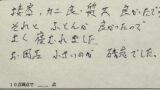 接客、カニ、風、質久 良かったです
それと ふとんが 良かったので
よく 寝むれました
お風呂 小さいのが 残念でした。
10点満点で　　点